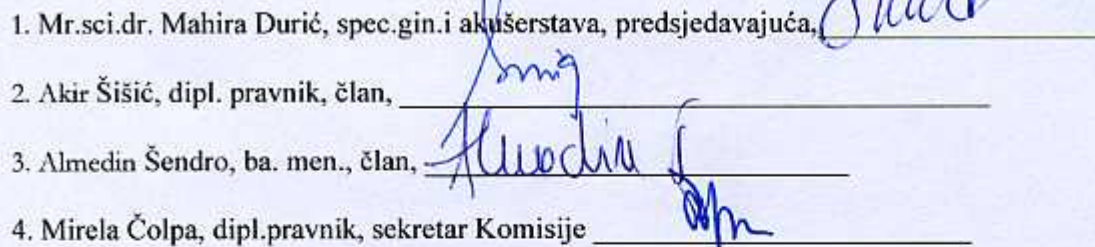 1. Mr.sci.dr. Mahira Durić, spec.gin.i akušerstava, predsjedavajuća,
2. Akir Šišić, dipl. pravnik, član,
3. Almedin Šendro, ba. men., član, Almedin Š
4. Mirela Čolpa, dipl.pravnik, sekretar Komisije